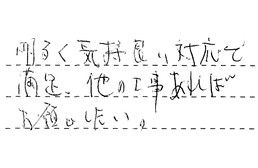 明るく気持良い対応で
満足。他の工事あれば
お願いしたい。